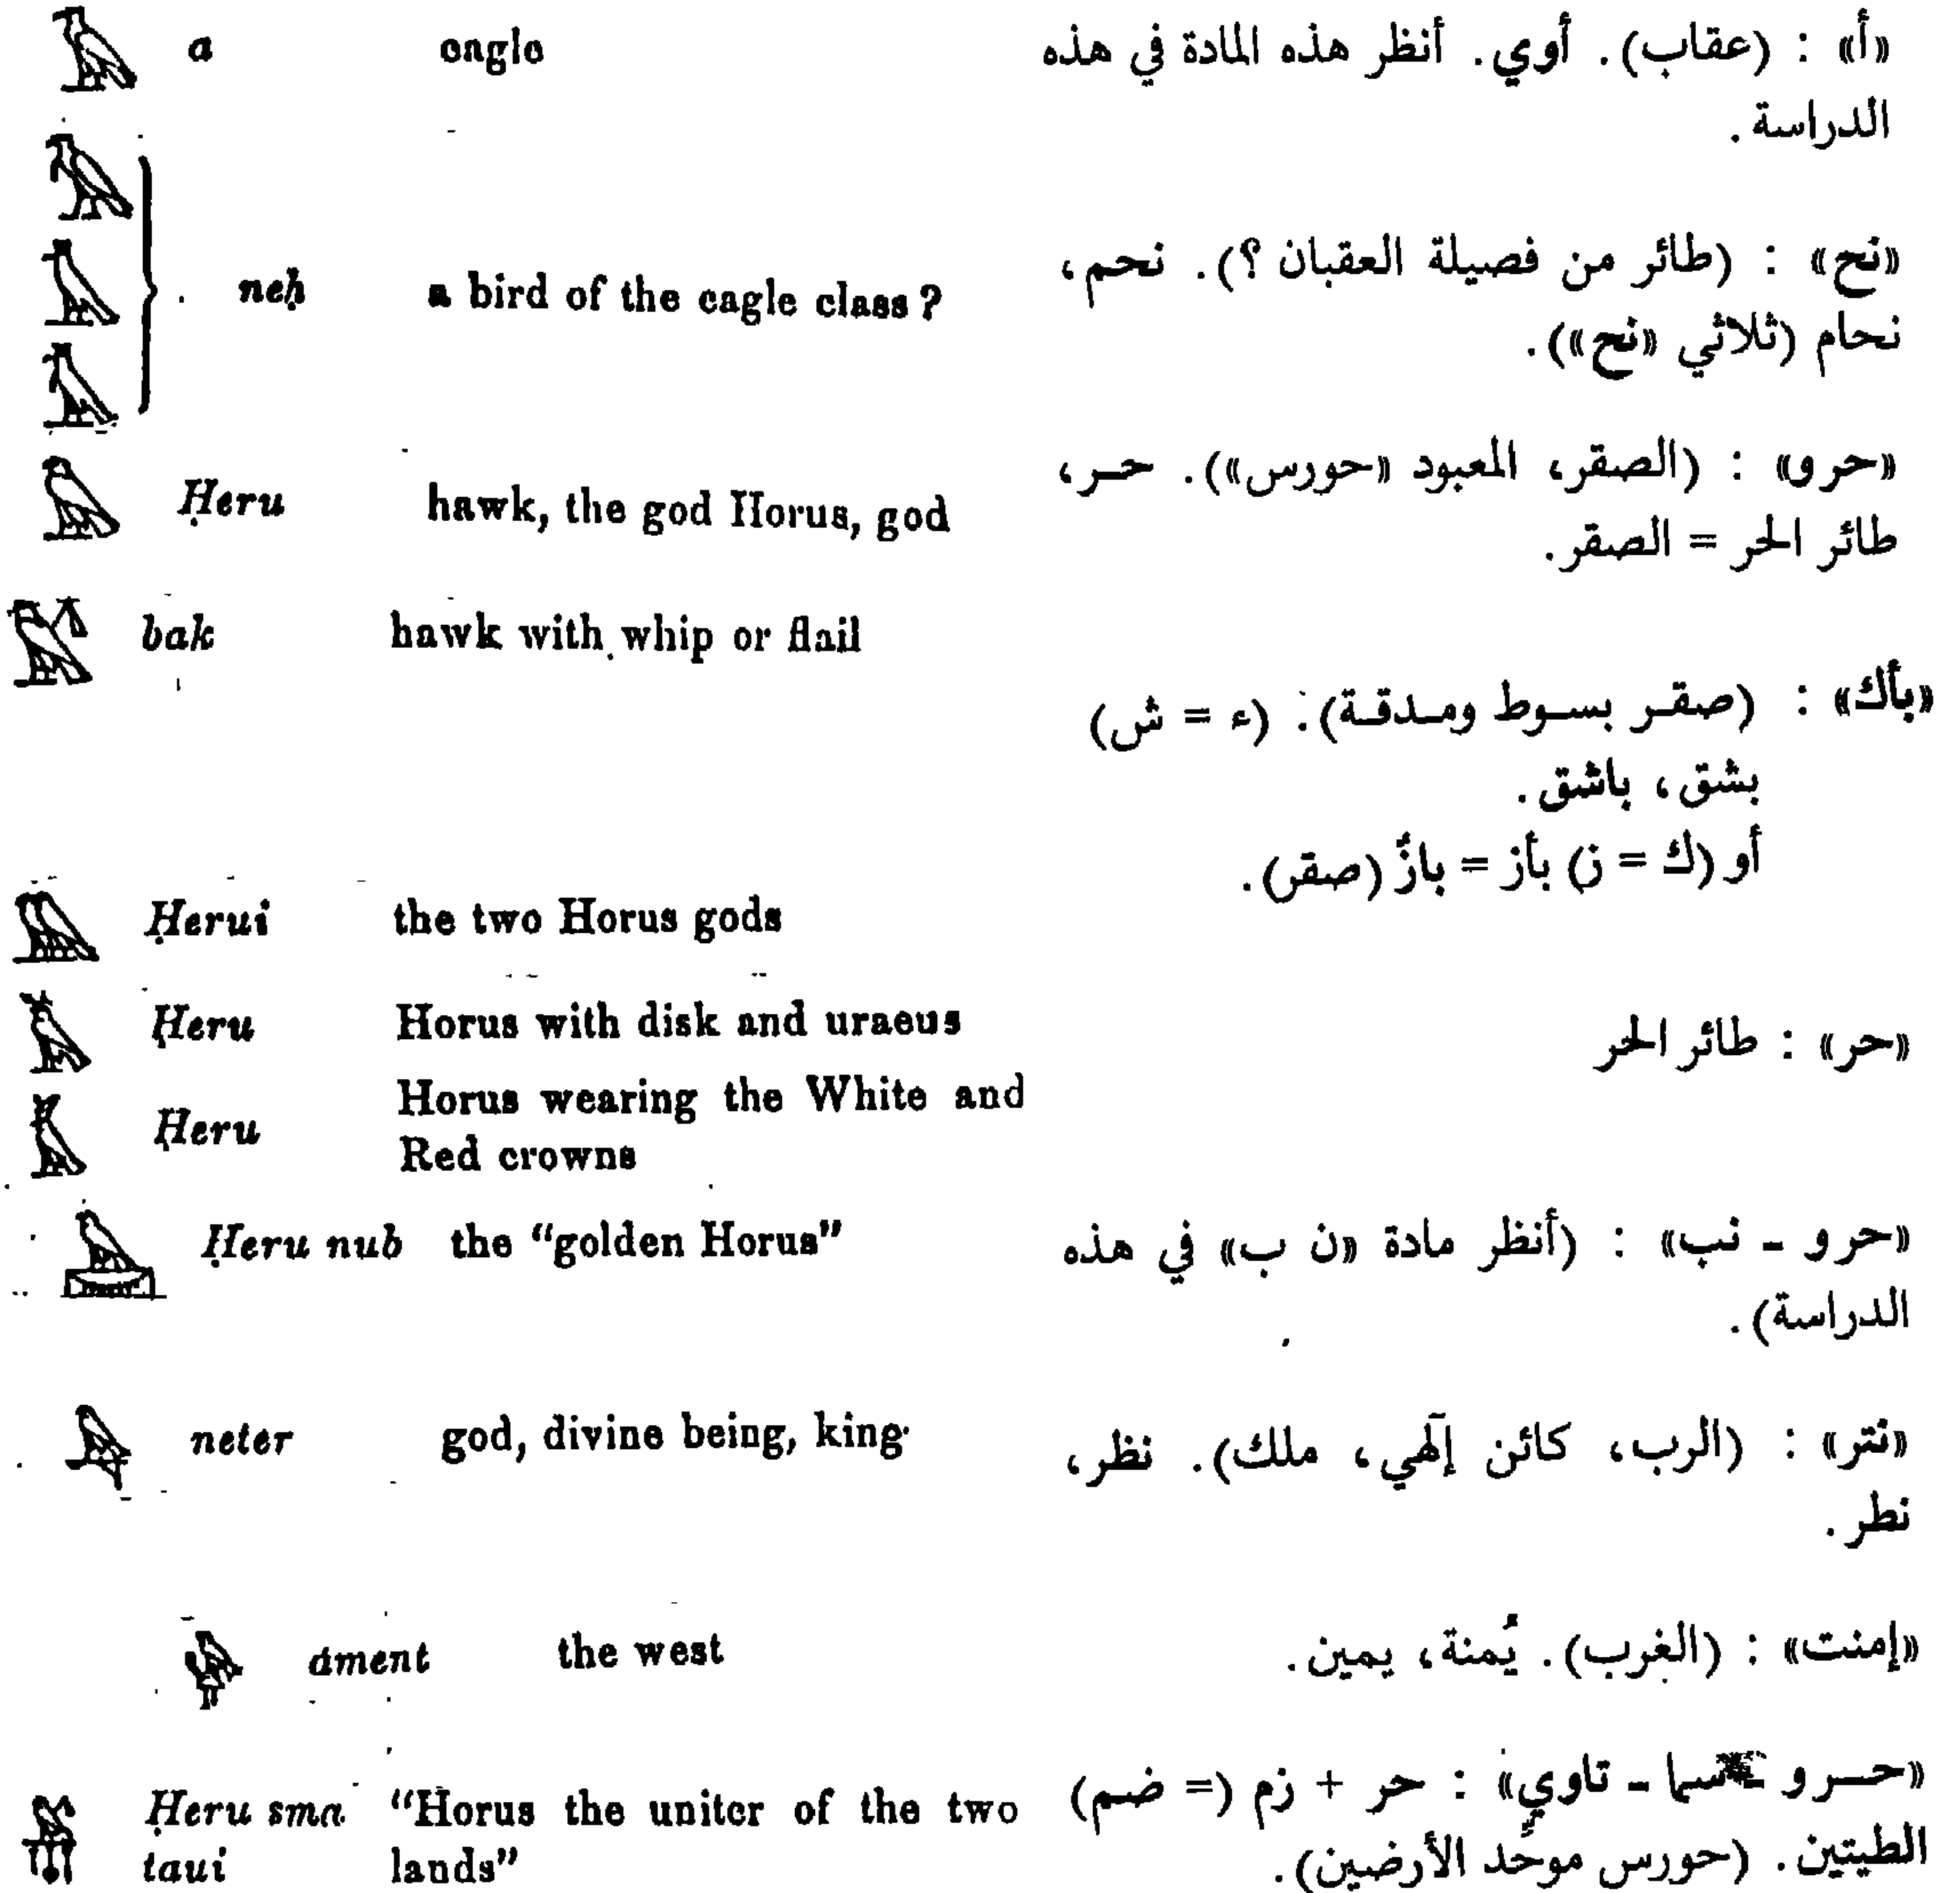 a eagle «أ» : (عقاب). أوي. أنظر هذه المادة في هذه
الدراسة.
neḥ a bird of the eagle class? «نح» : (طائر من فصيلة العقبان ؟). نحم،
نحام (ثلاثي «نح»).
Ḥeru hawk, the god Horus, god «حرو» : (الصقر، المعبود «حورس»). حر،
طائر الحر = الصقر.
bak hawk with whip or flail
«بأك» : (صقر بسوط ومدقة). (ء = ش)
بشق، باشق.
أو (ك = ز) بأز = بازٌ (صقر).
Ḥerui the two Horus gods
Ḥeru Horus with disk and uraeus «حر» : طائر الحر
Ḥeru Horus wearing the White and
Red crowns
Ḥeru nub the "golden Horus" «حرو - نب» : (أنظر مادة «ن ب» في هذه
الدراسة).
neter god, divine being, king «نتر» : (الرب، كائن إلٓهي، ملك). نظر،
نطر.
ȧment the west «إمنت» : (الغرب). يُمنة، يمين.
Ḥeru sma "Horus the uniter of the two «حرو - سما - تاوي» : حر + زم (= ضم)
taui lands" الطيتين. (حورس موحِّد الأرضين).